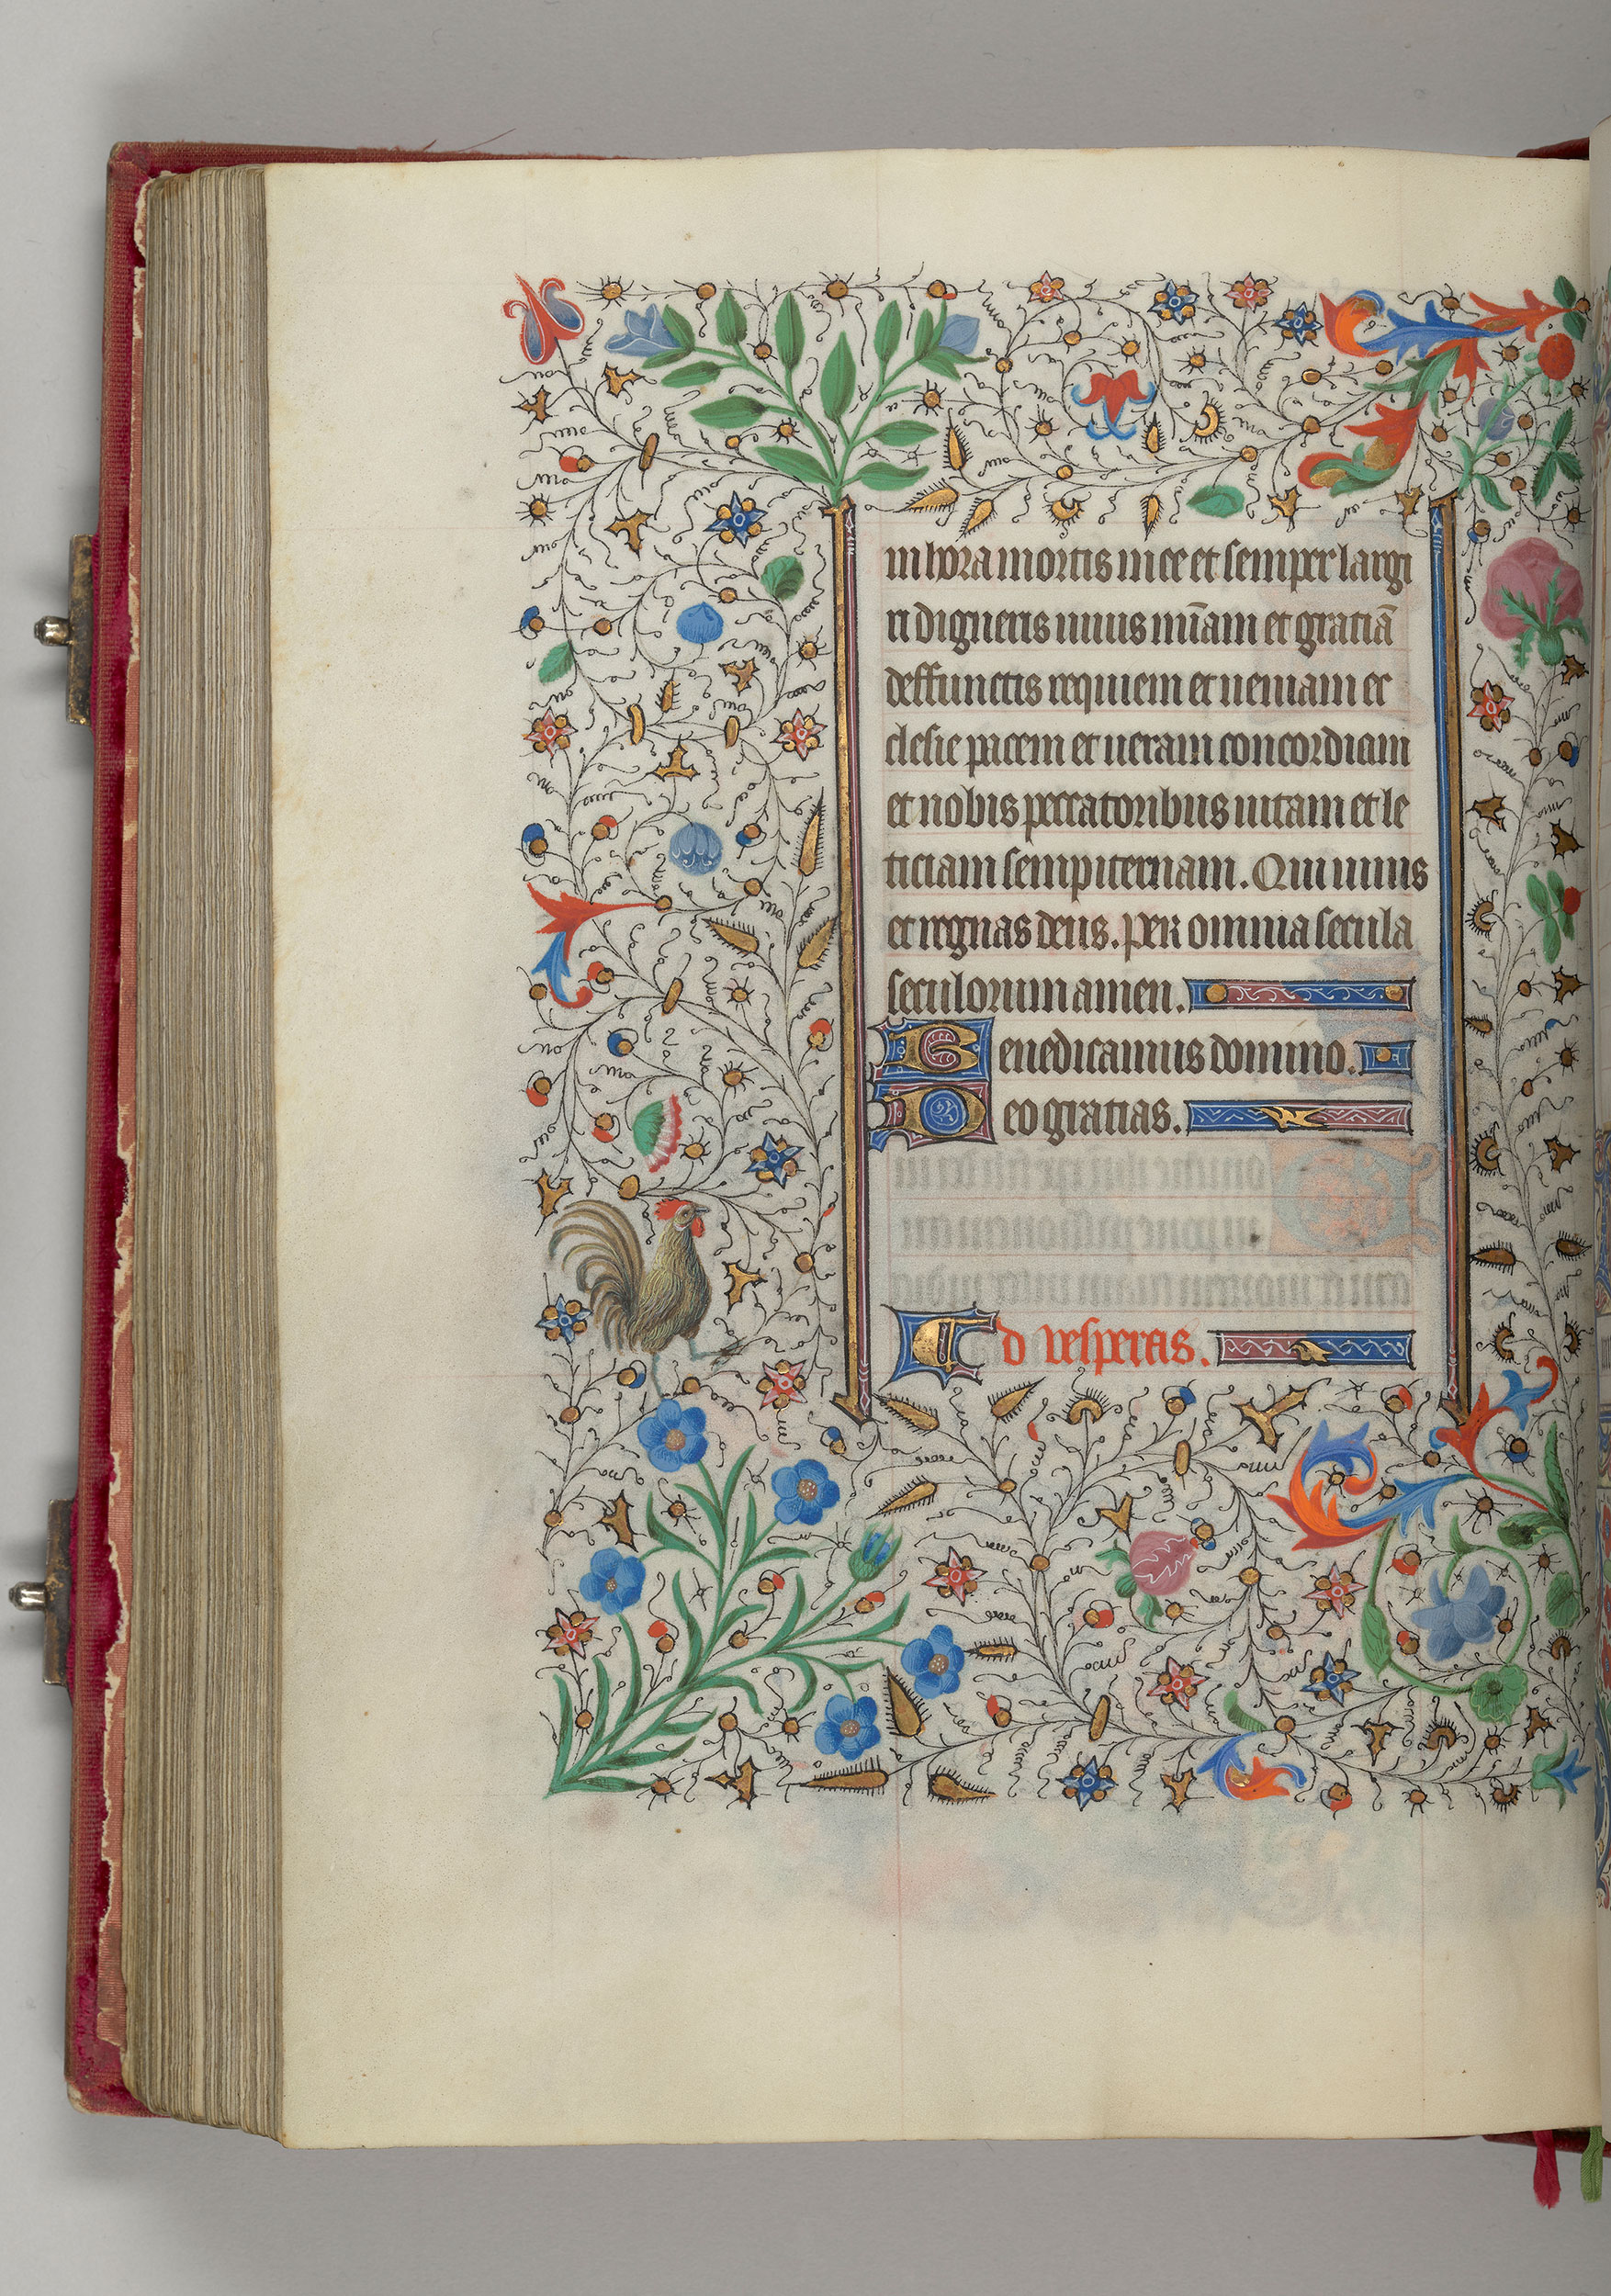 in hora mortis mee et semper largi
ri digneris uiuis mīam et gratiā
deffunctis requiem et ueniam ec
clesie pacem et ueram concordiam
et nobis peccatoribus uitam et le
ticiam sempiternam. Qui uiuis
et regnas deus. Per omnia secula
seculorum amen.
Benedicamus domino.
Deo gratias.
Ad vesperas.